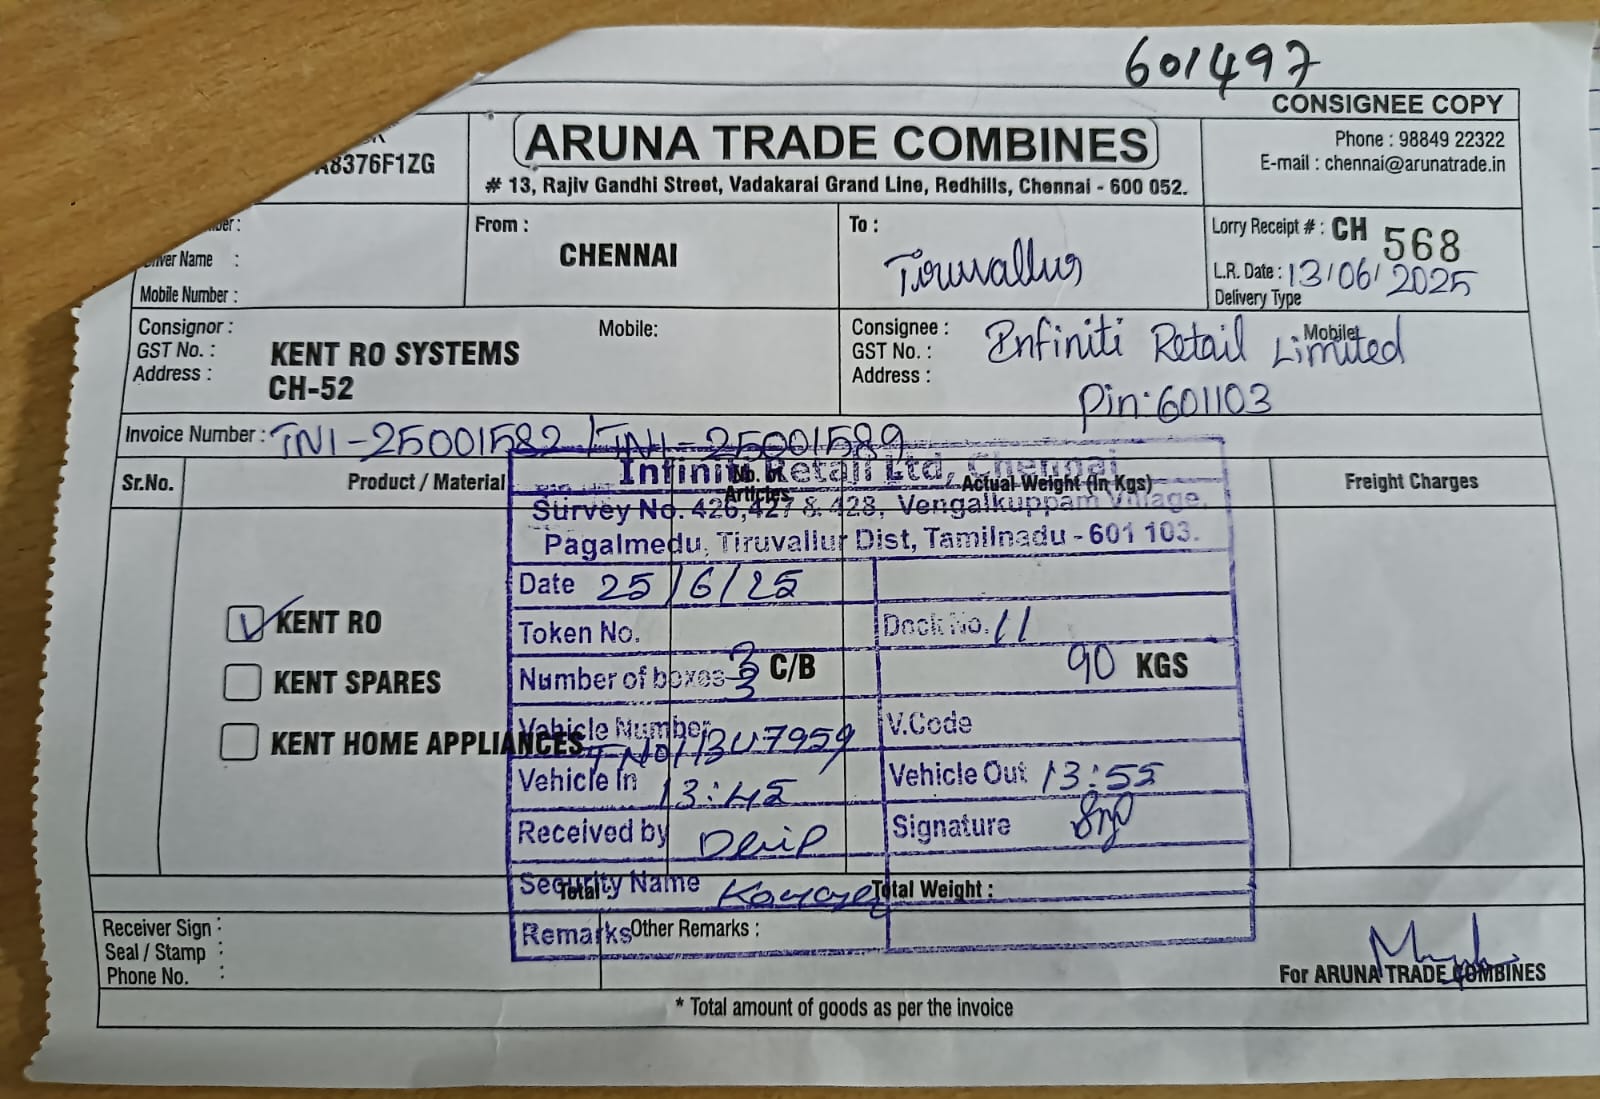 601497
CONSIGNEE COPY
A8376F1ZG
ARUNA TRADE COMBINES
# 13, Rajiv Gandhi Street, Vadakarai Grand Line, Redhills, Chennai - 600 052.
Phone : 98849 22322
E-mail : chennai@arunatrade.in
Name :
Mobile Number :
From :
CHENNAI
To :
Tiruvallur
Lorry Receipt # : CH 568
L.R. Date : 13/06/2025
Delivery Type
Consignor :
GST No. :
Address :
Mobile:
KENT RO SYSTEMS
CH-52
Consignee :
GST No. :
Address :
Mobile:
Infiniti Retail Limited
Pin: 601103
Invoice Number : TN1-25001582 / TN1-25001589
Sr.No.
Product / Material
No. of
Articles
Actual Weight (In Kgs)
Freight Charges
Infiniti Retail Ltd, Chennai
Survey No. 426,427 & 428, Vengalkuppam Village,
Pagalmedu, Tiruvallur Dist, Tamilnadu - 601 103.
Date 25/6/25
Token No.
Dock No. 11
Number of boxes 3
3 C/B
90 KGS
Vehicle Number
V.Code
Vehicle In 13:45
Vehicle Out 13:55
Received by Dilip
Signature
Security Name
Remarks
KENT RO
KENT SPARES
KENT HOME APPLIANCES
Total
Total Weight :
Receiver Sign :
Seal / Stamp :
Phone No. :
Other Remarks :
For ARUNA TRADE COMBINES
* Total amount of goods as per the invoice